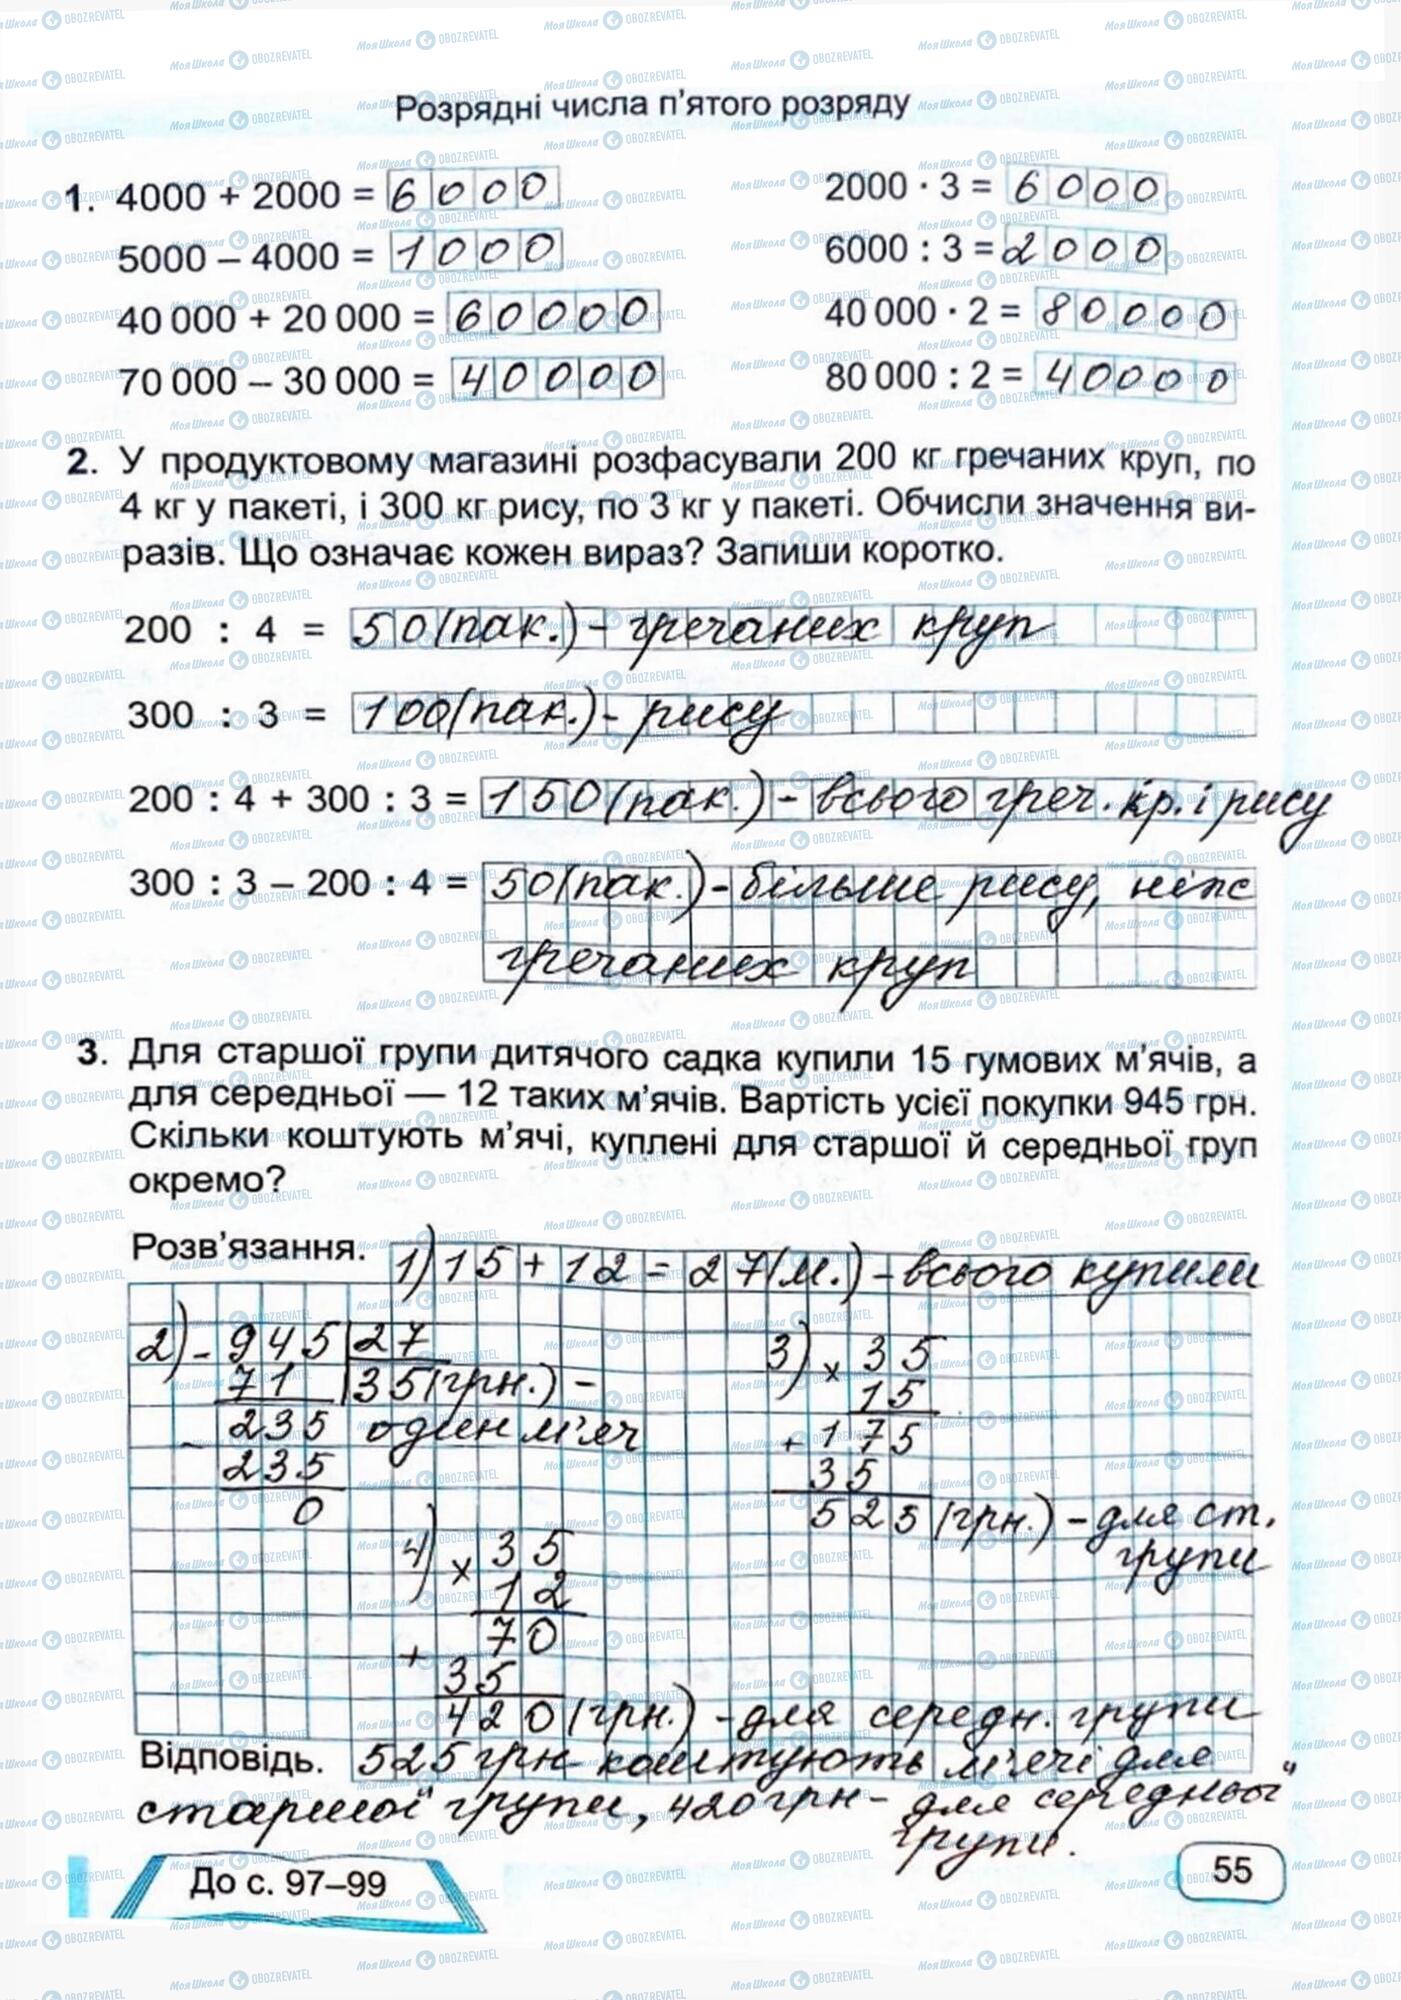 Розрядні числа п'ятого розряду
1. 4000 + 2000 = 6000
2000 · 3 = 6000
5000 – 4000 = 1000
6000 : 3 = 2000
40 000 + 20 000 = 60000
40 000 · 2 = 80000
70 000 – 30 000 = 40000
80 000 : 2 = 40000
2. У продуктовому магазині розфасували 200 кг гречаних круп, по
4 кг у пакеті, і 300 кг рису, по 3 кг у пакеті. Обчисли значення ви-
разів. Що означає кожен вираз? Запиши коротко.
200 : 4 = 50 (пак.) – гречаних круп
300 : 3 = 100 (пак.) – рису
200 : 4 + 300 : 3 = 150 (пак.) – всього греч. кр. і рису
300 : 3 – 200 : 4 = 50 (пак.) – більше рису, ніж
гречаних круп
3. Для старшої групи дитячого садка купили 15 гумових м'ячів, а
для середньої — 12 таких м'ячів. Вартість усієї покупки 945 грн.
Скільки коштують м'ячі, куплені для старшої й середньої груп
окремо?
Розв'язання. 1) 15 + 12 = 27 (м.) – всього купили
2) - 945 | 27
71 | 35 (грн.) –
- 235 один м'яч
235
0
3) × 35
15
+ 175
35
525 (грн.) – для ст.
групи
4) × 35
12
+ 70
35
420 (грн.) – для середн. групи
Відповідь. 525 грн коштують м'ячі для
старшої групи, 420 грн – для середньої
групи.
До с. 97–99
55
МояШкола OBOZREVATEL